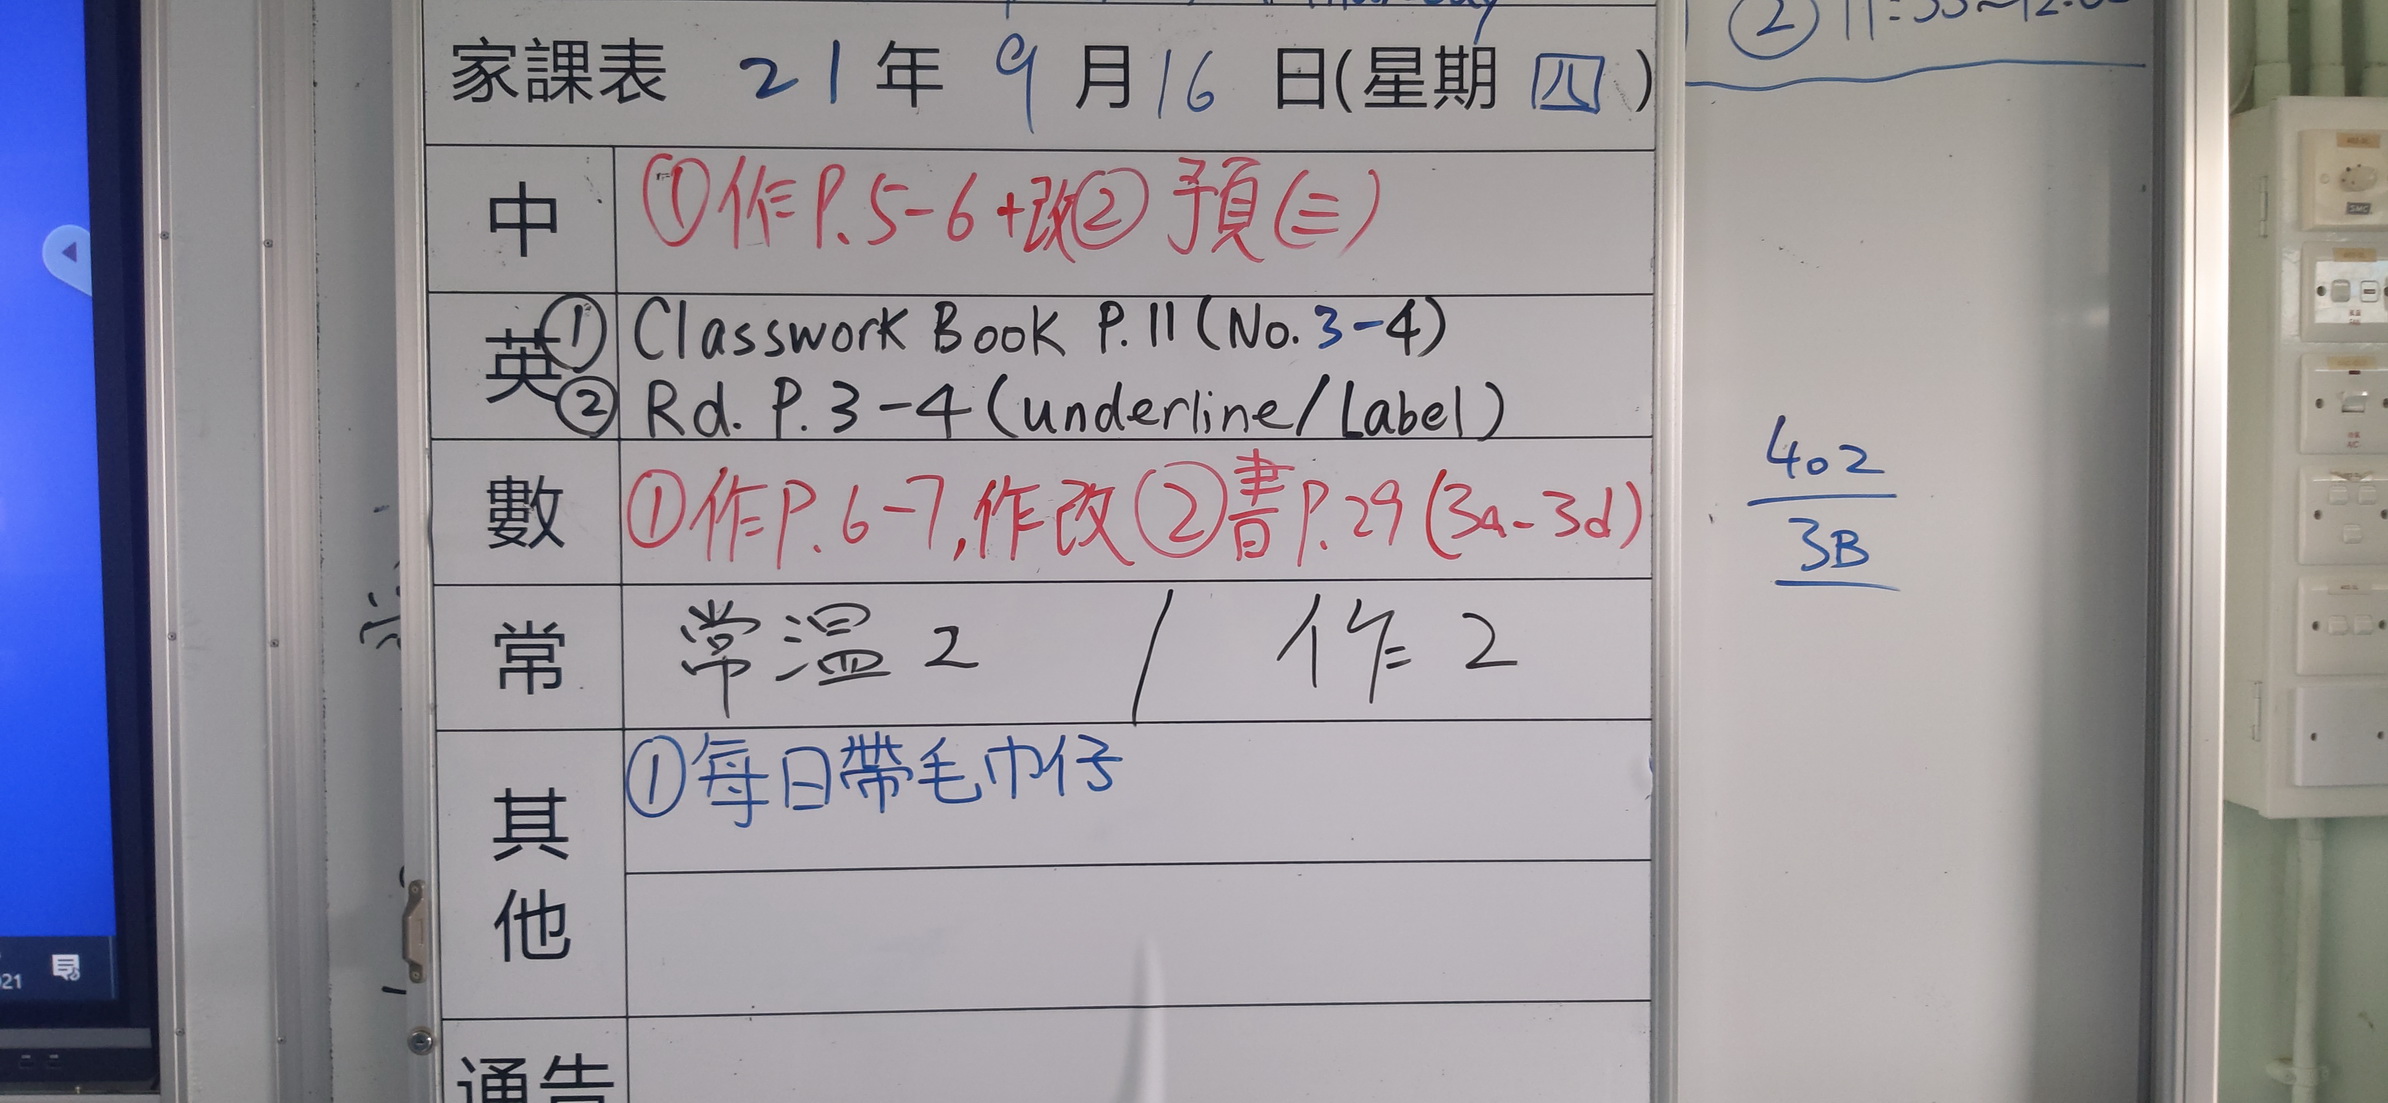 家課表 21年9月16日(星期四)
中 ①作P.5-6+改②預(三)
英 ① Classwork Book P.11(No.3-4)
② Rd. P.3-4(underline/Label)
數 ①作P.6-7,作改②書P.29(3a-3d)
常 常溫2 / 作2
其他 ①每日帶毛巾仔
通告
402
3B
021